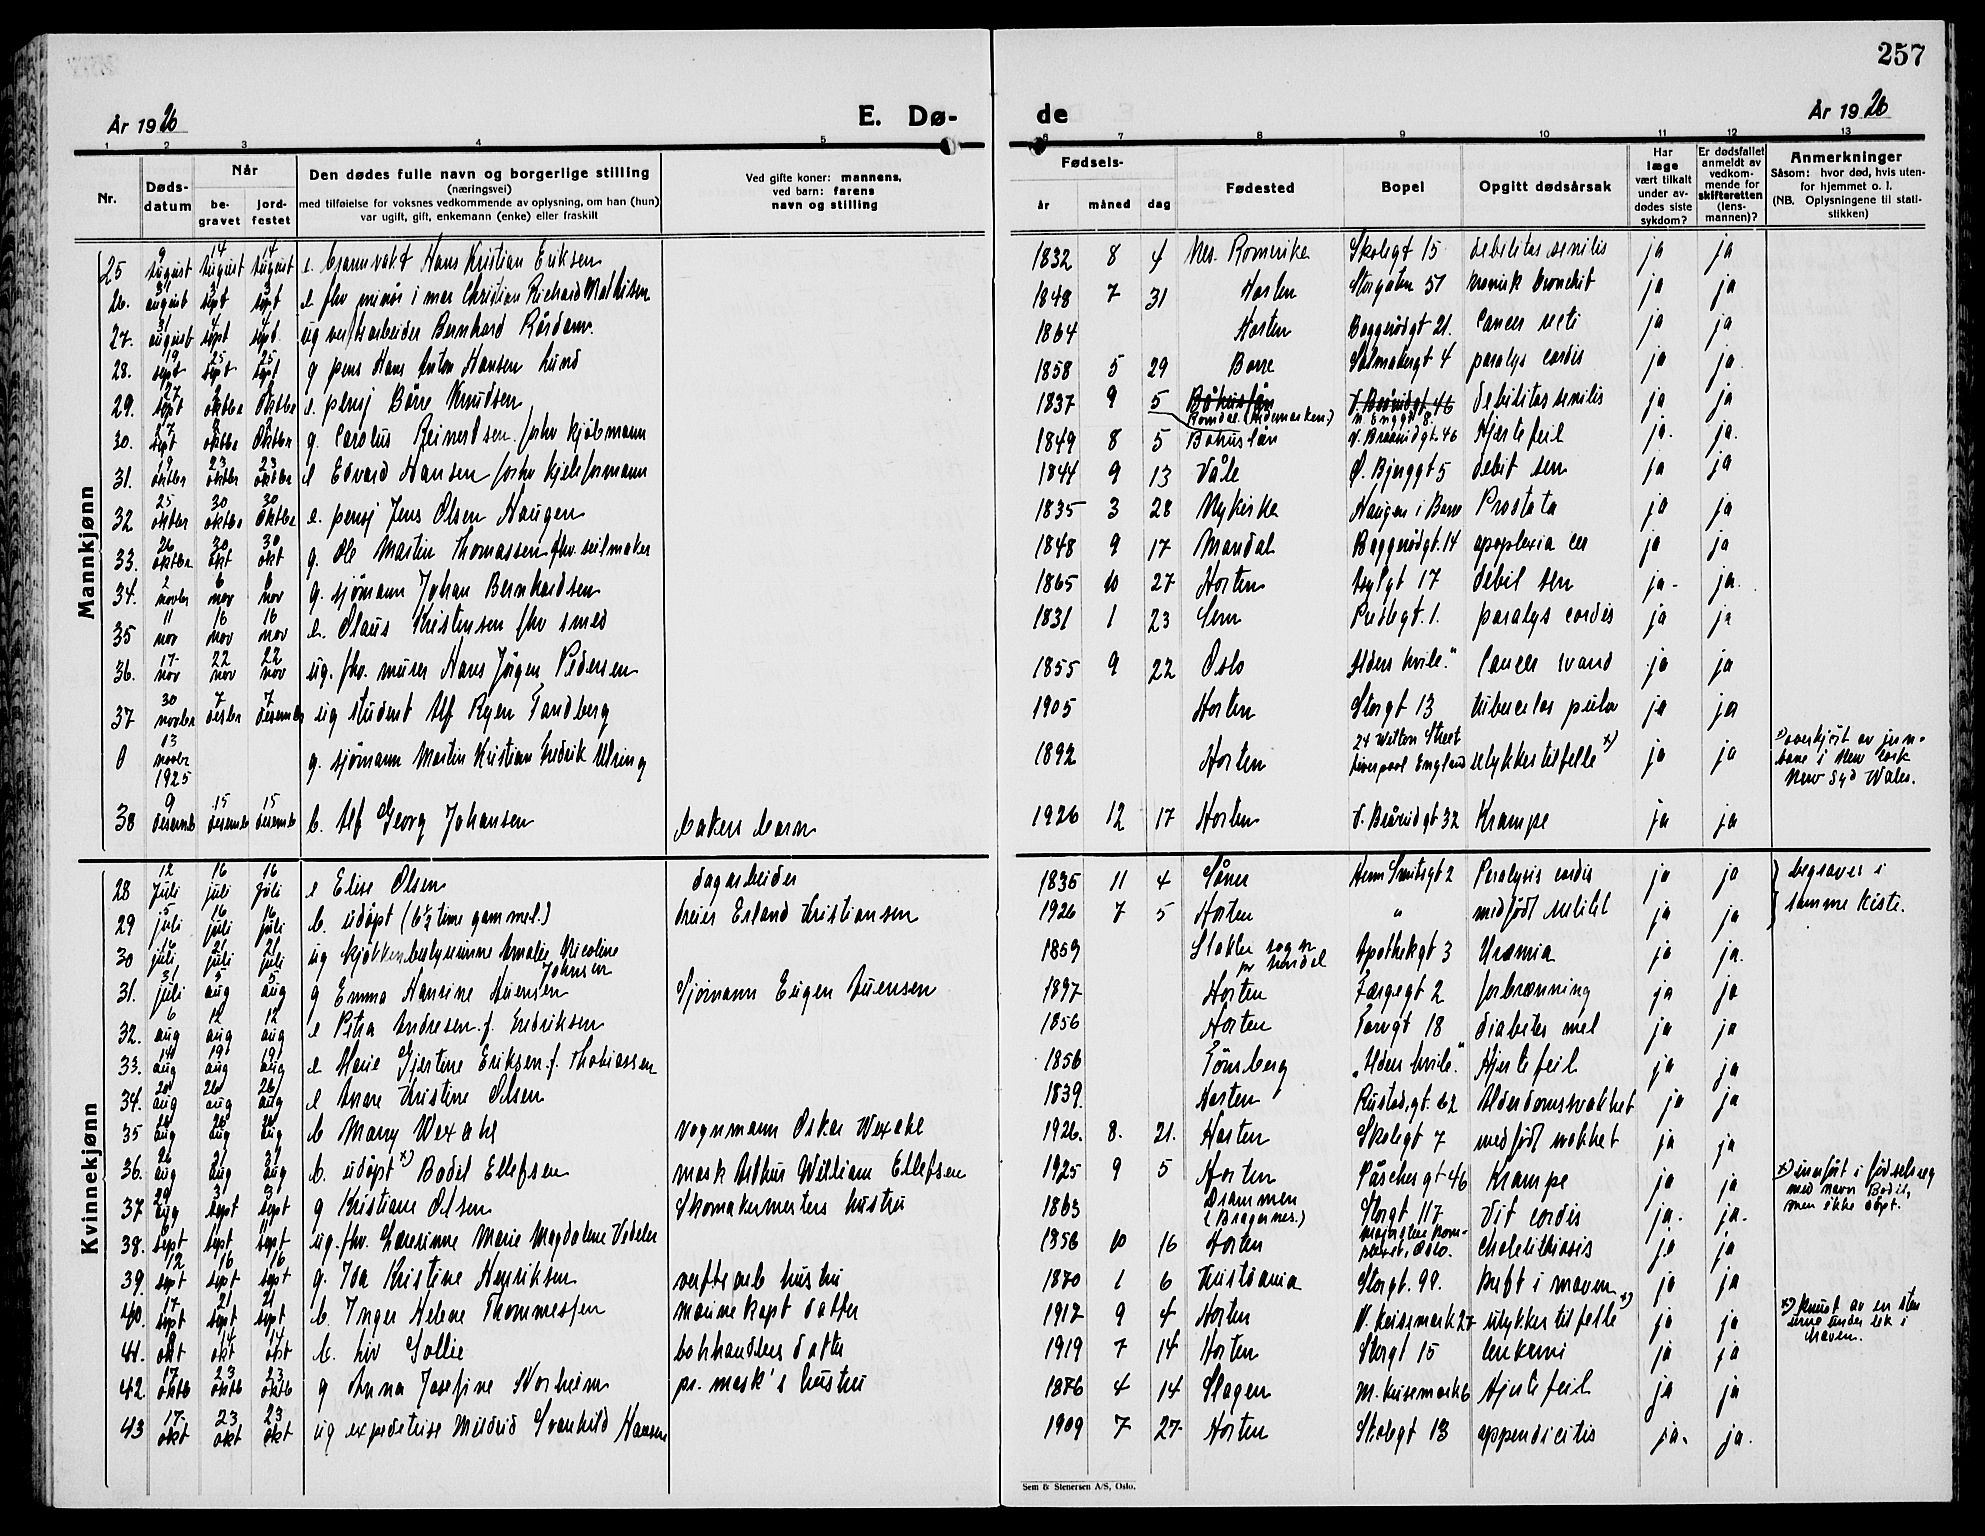 257
År 1926
E. Dø-
de
År 1926
1 2 3 4 5
6 7 8 9 10 11 12 13
Nr.
Døds-
datum
Når
be-
gravet
jord-
festet
Den dødes fulle navn og borgerlige stilling
(næringsvei)
med tilføielse for voksnes vedkommende av oplysning, om han (hun)
var ugift, gift, enkemann (enke) eller fraskilt
Ved gifte koner: mannens,
ved barn: farens
navn og stilling
Fødsels-
år måned dag
Fødested
Bopel
Opgitt dødsårsak
Har
læge
vært tilkalt
under av-
dødes siste
sykdom?
Er dødsfallet
anmeldt av
vedkom-
mende for
skifteretten
(lens-
mannen)?
Anmerkninger
Såsom: hvor død, hvis uten-
for hjemmet o. l.
(NB. Oplysningene til stati-
stikken)
Mannkjønn
25 9 august 14 august 14 august e. brannvakt Hans Kristian Eriksen 1832 8 4 Nes. Romerike Skolegt 15 debilitas senilis ja ja
26. 31 august 3 sept 3 sept e fhv minør i mar Christian Richard Mathisen 1848 7 31 Horten Storgaten 57 kronisk bronchit ja ja
27. 31 august 4 sept 4 sept. ug verftsarbeider Bernhard Rårdam. 1864 Horten Baggerødgt 21. Cancer recti ja ja
28. 19 sept 25 sept 25 sept g pens Hans Anton Hansen Lund 1858 5 29 Borre 4 paralys cordis ja ja.
29. 27 sept 2 oktbr 2 oktbr e. pensj Børre Knudsen 1837 9 5 Båhuslän V. Braarudgt 46 debilitas senilis ja ja
Romdal (Hedemarken)
30. 27 sept oktbr oktbr g. Carolus Reinertsen forhv kjøbmann 1849 8 5 Bohuslän V. Braarudgt. 46 Hjertefeil ja. ja.
31. 19 oktbr 23 oktbr 23 oktbr e Edvard Hansen forhv kjeleformann 1844 9 13 Våle Ø. Bjerggt 5 debil sen ja ja
32 25 oktbr 30 oktbr 30 oktbr e. pensj Jens Olsen Haugen 1835 3 28 Nykirke Haugen i Borre Prostata ja ja
33. 26 oktbr 30 okt 30 okt g. Ole Martin Thomassen fhv. seilmaker 1848 9 17 Mandal Baggerødgt. 14 apoplexia cer ja ja
34. 2 novbr 6 nov 6 nov g. sjømann Johan Bernhardsen 1865 10 27 Horten 17 debil sen ja - ja.
35 11 nov 16 nov 16 nov e. Olaus Kristensen fhv smed 1831 1 23 Sem 1. paralys cordis ja ja
36. 17 nov 22 nov 22 nov ug. fhv. murer Hans Jørgen Pedersen 1855 9 22 Oslo Alders hvile." Cancer ja ja
37 30 novbr 7 desbr 7 desember ug student Alf Ryen Tandberg 1905 Horten Storgt 13 tubercelos pulm ja ja
0 13 novbr 1925 g. sjømann Martin Kristian Fredrik Ulring 1892 Horten 24 Welton Street Liverpool England ulykkestilfelle x) ja ja x) overkjørt av jern-
bane i New Lork
New Syd Wales.
38 9 desemb 15 desemb 15 desemb b. Alf Georg Johansen bakers barn 1926 12 17 Horten V. Braarudgt 32 Krampe ja ja
Kvinnekjønn
28 12 juli 16 juli 16 juli e Elise Olsen dagarbeider 1835 11 4 Såner Henr Smitsgt 2 Paralysis cordis ja ja begraves i
29 5 juli 16 juli 16 juli b. udøpt (6 ½ time gammel.) Erland Kristiansen 1926 7 5 Horten " medfødt ja ja samme kiste.
30 16 juli 21 juli 21 juli ug kjøkkenbestyrerinne Amalie Nicoline
Johnsen 1859 Stokke sogn pr Apothekgt 3 Uræmia ja ja.
31. 31 juli 5 aug 5 aug g Emma Hansine Iuensen Sjømann Eugen Iuensen 1897 Horten Færgegt 2 forbrænning ja ja
32. 6 aug 12 aug 12 aug e Petra Andresen f. Fredriksen 1856 Horten 18 diabetes mel ja ja
33. 14 aug 19 aug 19 aug e Marie Gjertine Eriksen f. Thobiassen 1856 Tønsberg „Alders hvile." Hjertefeil ja ja
34. 20 aug 26 aug 26 aug e Anne Kristine Olsen 1839 Horten Rustadgt. 62 Alderdomsvakhet ja ja
35 aug aug aug b Marry Wexahl vognmann Oskar Wexahl 1926. 8. 21. Horten Skolegt 7 medfødt svakhet ja ja
36. 26 aug 31 aug 31 aug b. udøpt x) Bodil Ellefsen mask Arthur William Ellefsen 1925 9 5 Horten Påschesgt 46 Krampe ja ja x) innført i fødselsreg
med navn Bodil,
men ikke døpt.
37 29 aug 3 sept 3 sept g Kristiane Olsen Skomakermesters hustru 1863 Drammen (Bragernes.) Storgt 117 Vit cordis ja. ja.
38. 6 sept 11 sept 11 sept ug. fhv. Lærerinne Marie Magdalene Vedeler 1856 10 16 Horten Oslo. cholelithiasis ja ja
39. 12 sept 16 sept 16 sept g. Ida Kristine Henriksen verftsarb hustru 1870 1 6 Kristiania Storgt. 99. kreft i maven ja ja
40. 17 sept 21 sept 21 sept b. Inger Helene Thommessen marinekapt datter 1917 9 4 Horten V. Keisemark 27 ulykkestilfelle x) ja ja x) knust av en sten
urne under lek i
haven.
41. 8 okt 14 okt 14 okt b. Liv Sollie bokhandlers datter 1919 7 14 Horten Storgt 15 leukemi ja ja
42 17 oktb 23 oktb 23 oktb g Anna Josefine Norheim pr. mask's hustru 1876 4 14 Slagen M. Keisemark 6 Hjertefeil ja ja
43 17 okt 23 okt 23 okt ug expeditrise Meidrid Svanhild Hansen 1909 7 27 Horten Skolegt 13 appendicitis ja. ja.
Sem & Stenersen A/S, Oslo.